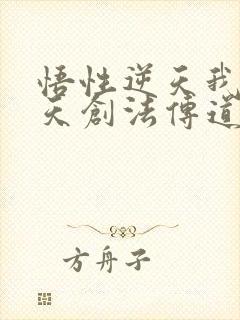 悟性逆天我
天創法傳道
方舟子